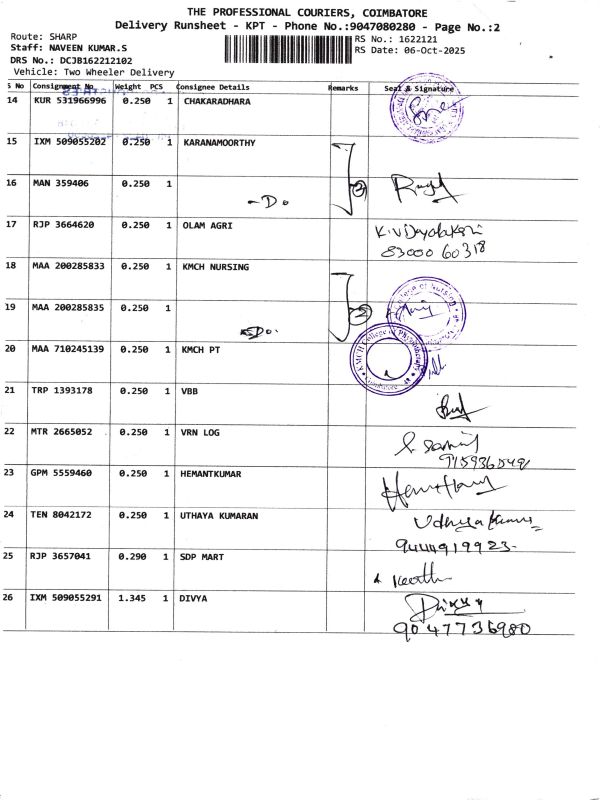 THE PROFESSIONAL COURIERS, COIMBATORE
Delivery Runsheet - KPT - Phone No.:9047080280 - Page No.:2
Route: SHARP
Staff: NAVEEN KUMAR.S
DRS No.: DCJB162212102
Vehicle: Two Wheeler Delivery
RS No.: 1622121
RS Date: 06-Oct-2025
S No Consignment No Weight PCS Consignee Details Remarks Seal & Signature
14 KUR 531966996 0.250 1 CHAKARADHARA
15 IXM 509055202 0.250 1 KARANAMOORTHY
16 MAN 359406 0.250 1 -Do 2
17 RJP 3664620 0.250 1 OLAM AGRI K.Vijayalakshi
83000 60318
18 MAA 200285833 0.250 1 KMCH NURSING
19 MAA 200285835 0.250 1 Do. 2
20 MAA 710245139 0.250 1 KMCH PT KMCH College of Physiotherapy
21 TRP 1393178 0.250 1 VBB
22 MTR 2665052 0.250 1 VRN LOG
23 GPM 5559460 0.250 1 HEMANTKUMAR
24 TEN 8042172 0.250 1 UTHAYA KUMARAN Udhaya Kumar
9444919923
25 RJP 3657041 0.290 1 SDP MART
26 IXM 509055291 1.345 1 DIVYA Divya
9047736980